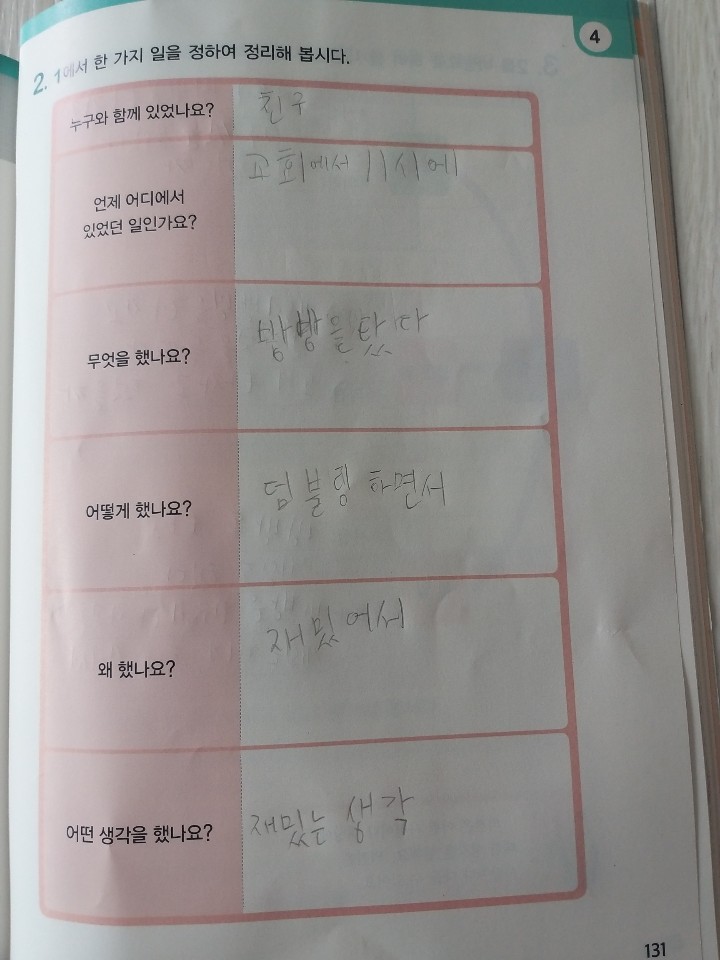 4
2. 1에서 한 가지 일을 정하여 정리해 봅시다.
누구와 함께 있었나요?
친구
언제 어디에서
있었던 일인가요?
교회에서 11시에
무엇을 했나요?
방방을 탔다
어떻게 했나요?
텀블링 하면서
왜 했나요?
재밌어서
어떤 생각을 했나요?
재밌는 생각
131